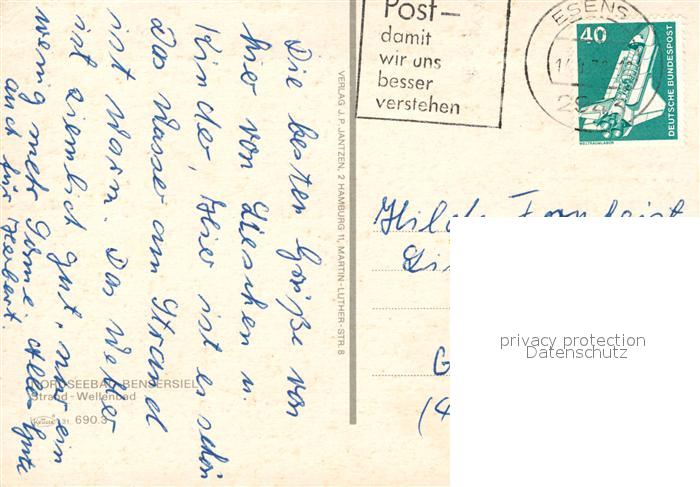 Post-
damit
wir uns
besser
verstehen
ESENS
40
DEUTSCHE BUNDESPOST
WELTRAUMLABOR
Die besten Grüße von
hier von Lieschen u.
Kinder, Hier ist es schön
Das Wasser am Strand
ist Warm. Das Wetter
ist ziemlich gut, nur ein
wenig mehr Sonne. Alles Gute
auch für Herbert.
VERLAG J.P. JANTZEN, 2 HAMBURG 11, MARTIN-LUTHER-STR. 8
NORDSEEBAD BENSERSIEL
Strand - Wellenbad
31. 690.3
Hilde
privacy protection
Datenschutz